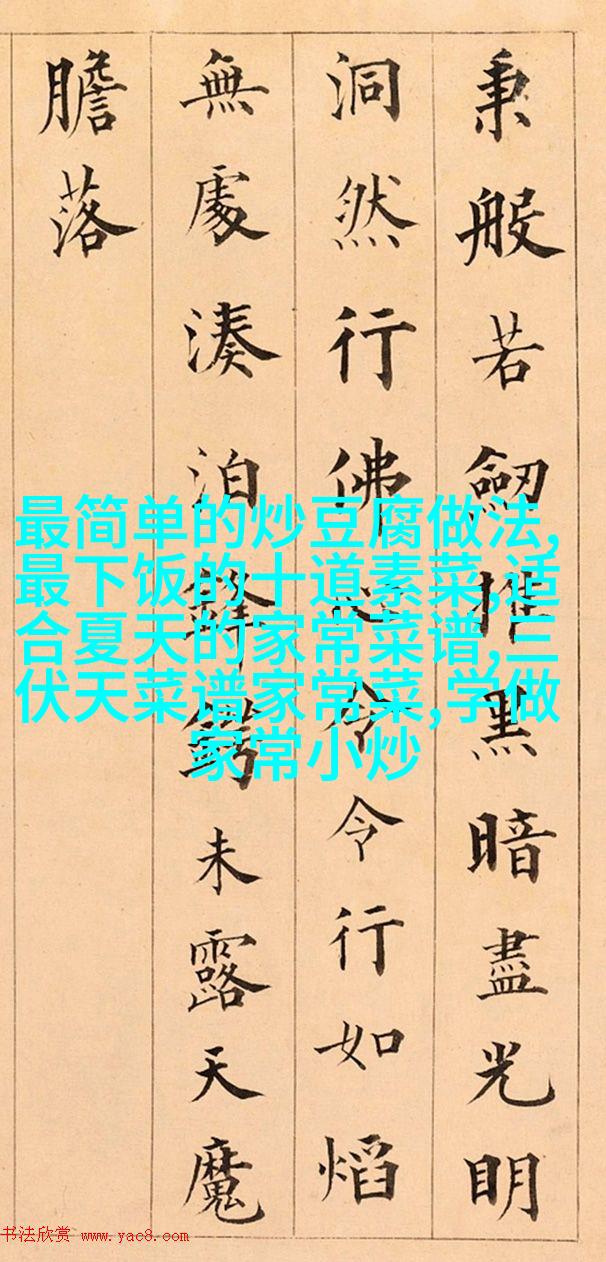 秉般若劒推黑暗盡光明
洞然行佛心令令行如熖
無處湊泊鋒鍔未露天魔
膽落
最简单的炒豆腐做法,
最下饭的十道素菜,适
合夏天的家常菜谱,三
伏天菜谱家常菜,学做
家常小炒
书法欣赏 www.yac8.com